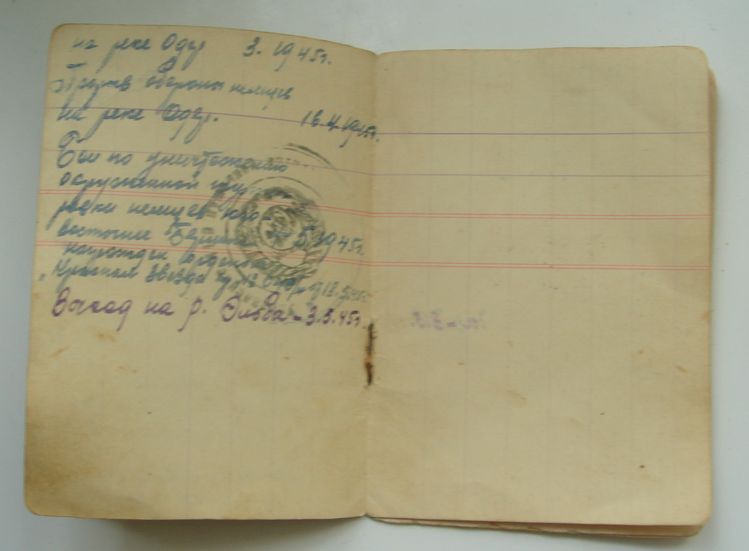 на реке Одер 3. 1945г.
Прорыв обороны немцев
на реке Одер. 16.4.1945г.
Бои по уничтожению
окруженной груп-
ровки немцев юго-
восточнее Берлина 5.1945г.
награжден орденом
"Красная звезда
Выход на р. Эльба - 3.5.45г.